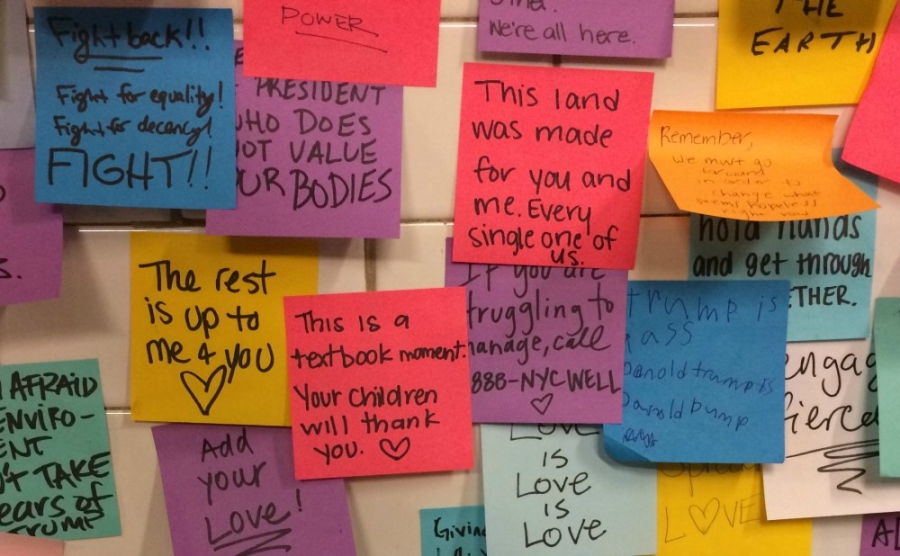 Fight back!!
Fight for equality!
Fight for decency!
FIGHT!!
POWER
We're all here.
THE
EARTH
PRESIDENT
WHO DOES
NOT VALUE
OUR BODIES
This land
was made
for you and
me. Every
single one of
us.
Remember,
we must go
around
in order to
change what
seems hopeless
right now
hold hands
and get through
The rest
is up to
me & you
This is a
textbook moment.
Your children
will thank
you.
If you are
struggling to
manage, call
888-NYCWELL
Trump is
ass
Donold trump is
Darnold Dump
AFRAID
ENVIRO-
TAKE
years of
Trump
Add
your
Love!
Love
is
Love
is
Love
Spread
LOVE
Giving